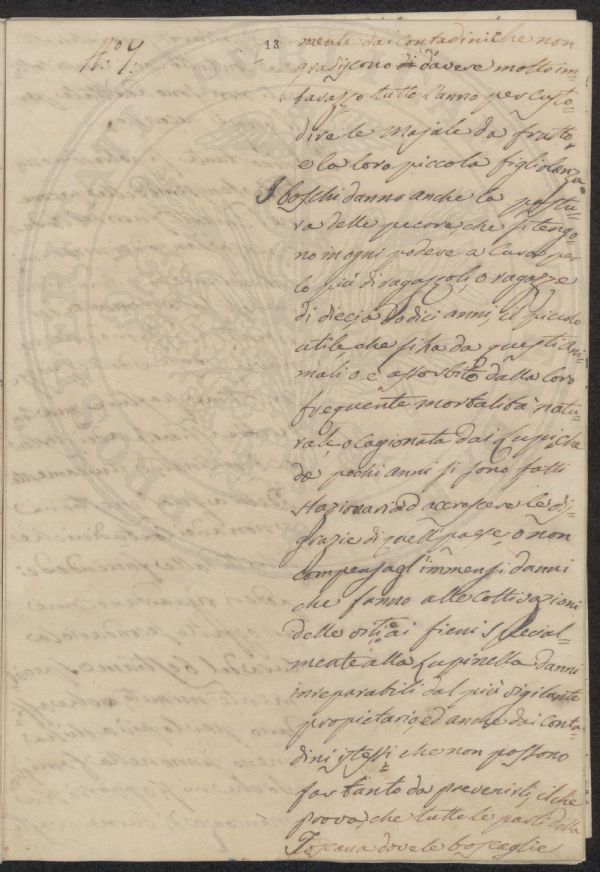 N.º 7.
13
mente dai Contadini che non
gradiscono di davere molto im-
barazzo tutto l'anno per Custo-
dire le Majale da frutto,
e la loro piccola figliolanza.
I boschi danno anche la pastu-
ra delle pecore, che si tengo-
no in ogni podere a Cura per
lo più di ragazzoli, o ragazze
di dieci, a Dodici anni, il piccolo
utile, che si fra da questi Ani-
mali o è assorbito dalla loro
frequente mortalità natu-
rale, o cagionata dai Lupi, che
da pochi anni si sono fatti
stazionari ad accrescere le dis-
grazie di quell paese, o non
compensa gl'immensi danni
che fanno alle coltivazioni
delle viti, ai fieni special-
mente alla Lupinella danni
irreparabili dal più vigilante
propietario, ed anche dai Conta-
dini istessi che non possono
far tanto da prevenirli, il che
prova, che tutte le parti della
Toscana dove le boscaglie